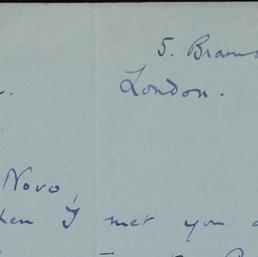 5. Bram
London.
Novo,
hen I met you